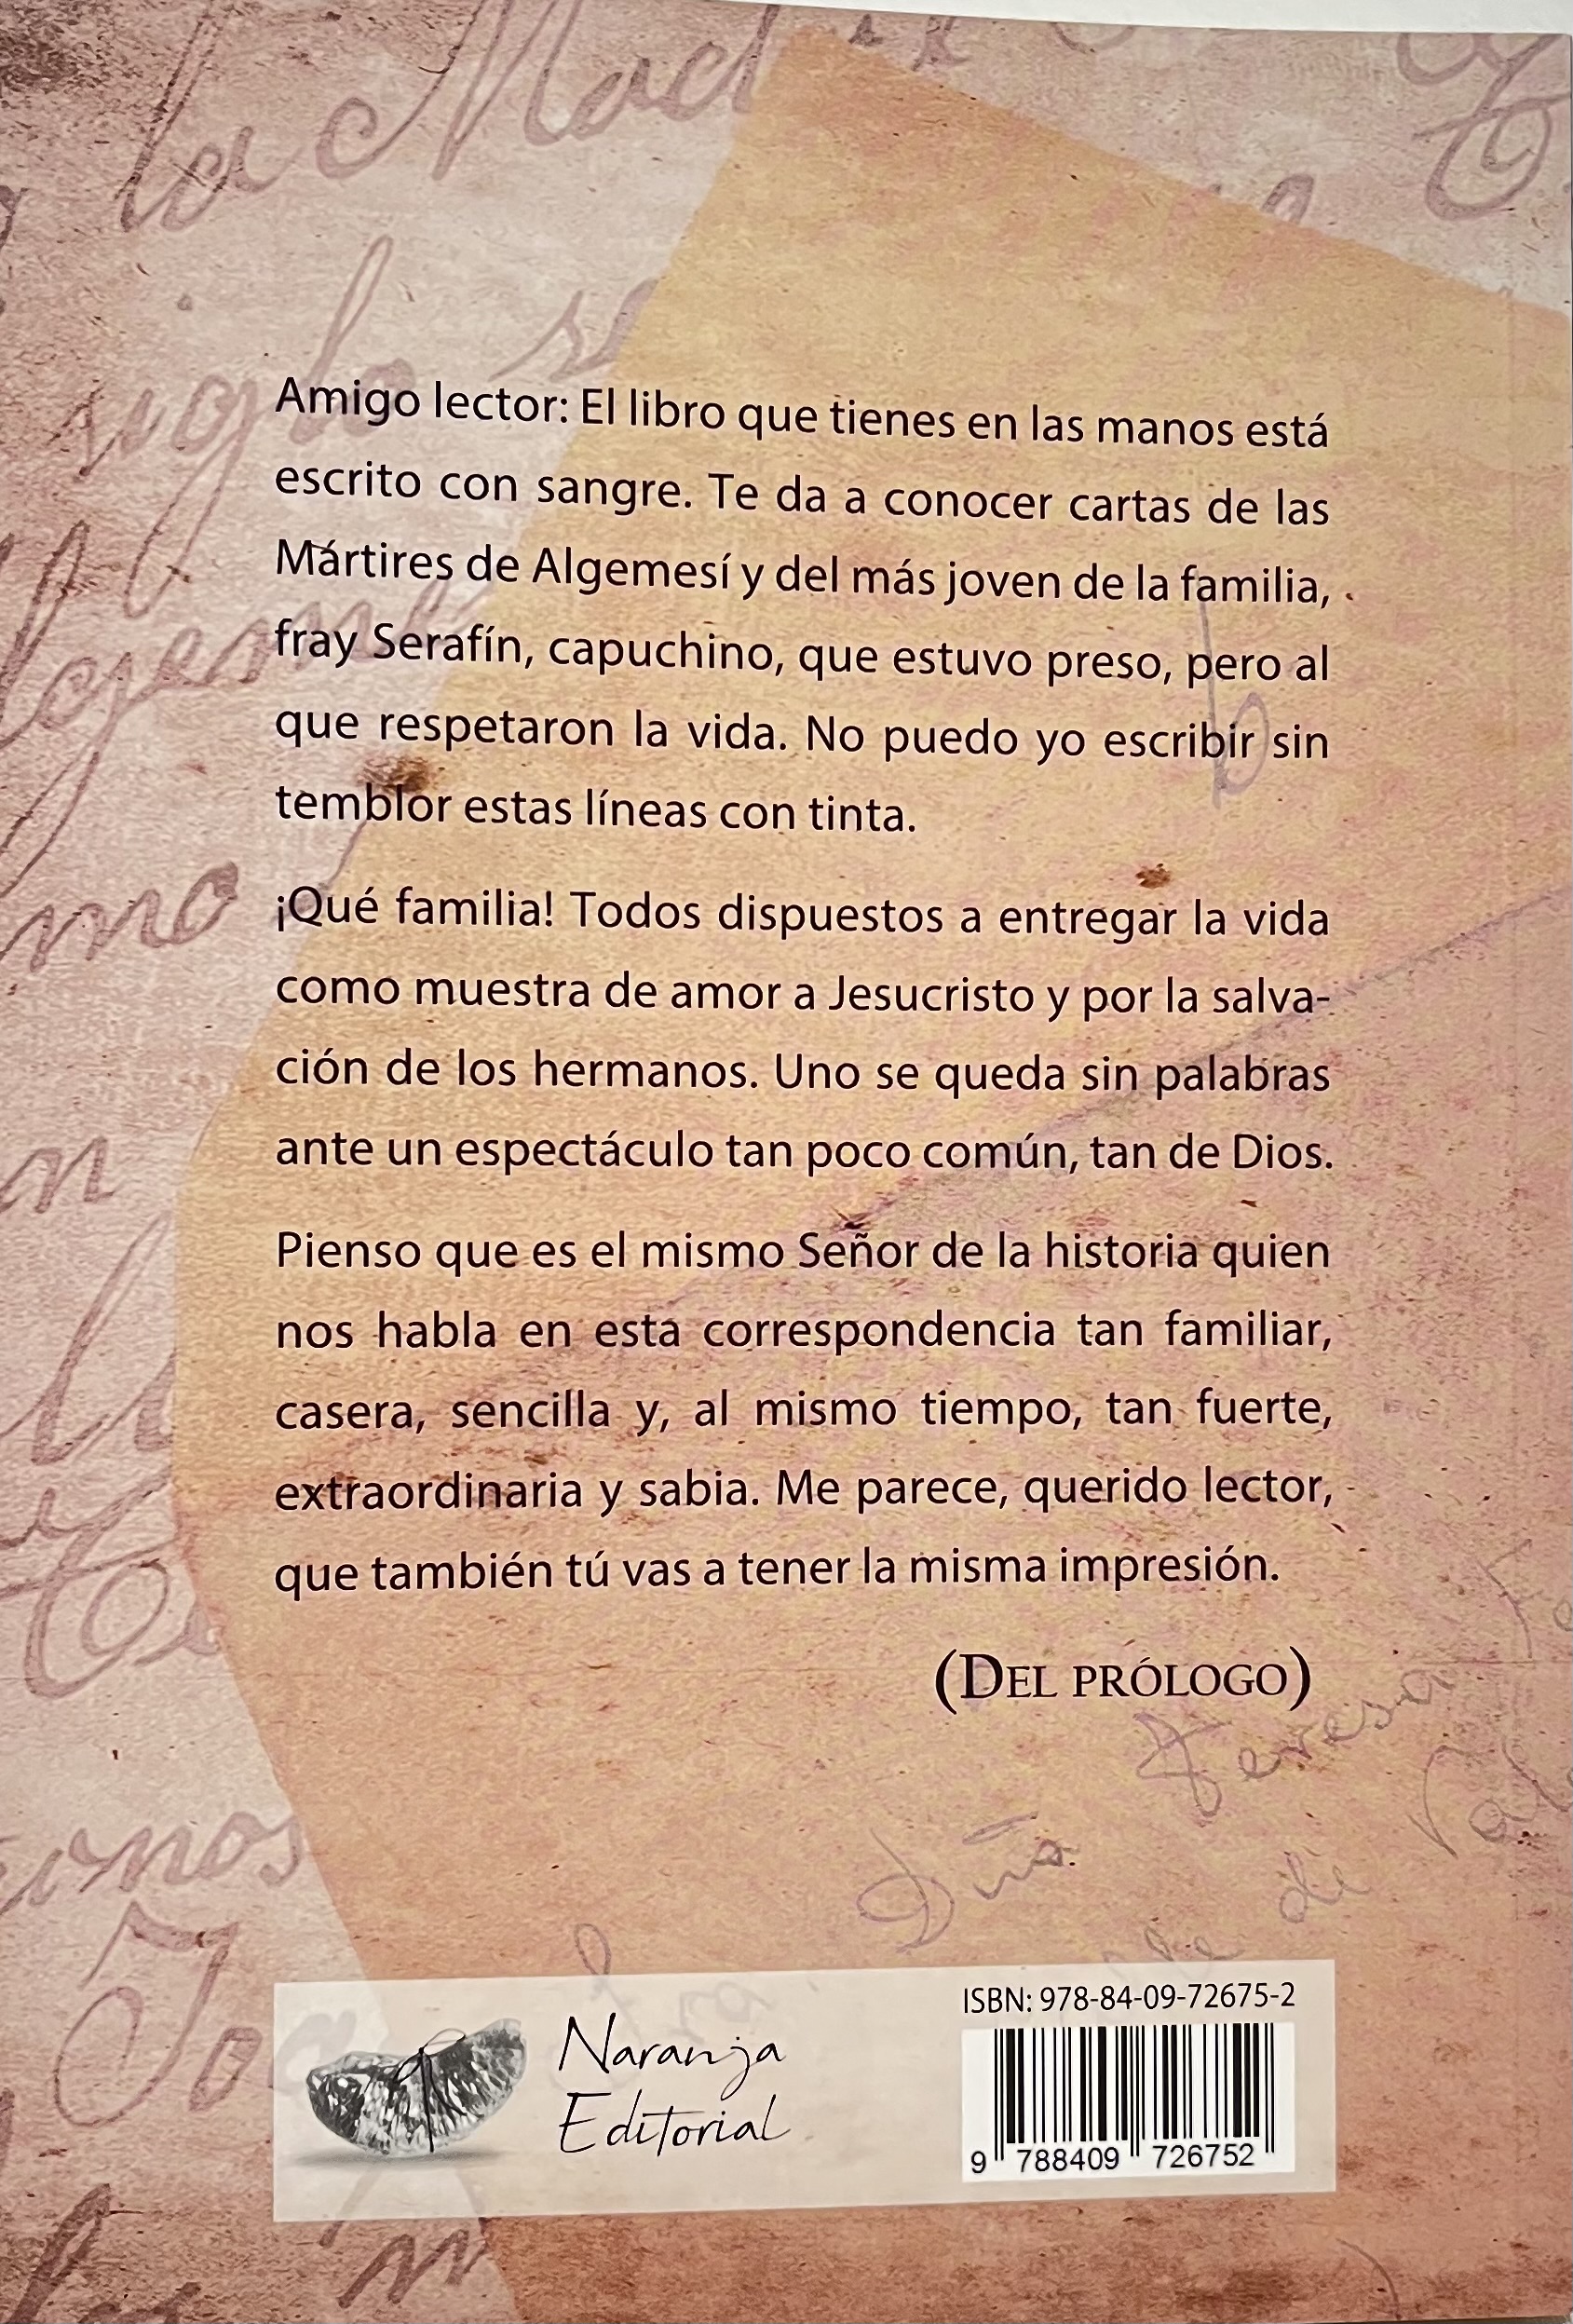 la Mad
siglo s
Amigo lector: El libro que tienes en las manos está
escrito con sangre. Te da a conocer cartas de las
Mártires de Algemesí y del más joven de la familia,
fray Serafín, capuchino, que estuvo preso, pero al
que respetaron la vida. No puedo yo escribir sin
temblor estas líneas con tinta.
¡Qué familia! Todos dispuestos a entregar la vida
como muestra de amor a Jesucristo y por la salva-
ción de los hermanos. Uno se queda sin palabras
ante un espectáculo tan poco común, tan de Dios.
Pienso que es el mismo Señor de la historia quien
nos habla en esta correspondencia tan familiar,
casera, sencilla y, al mismo tiempo, tan fuerte,
extraordinaria y sabia. Me parece, querido lector,
que también tú vas a tener la misma impresión.
(DEL PRÓLOGO)
Dña. Teresa
de Val
ISBN: 978-84-09-72675-2
Naranja
Editorial
9 788409 726752